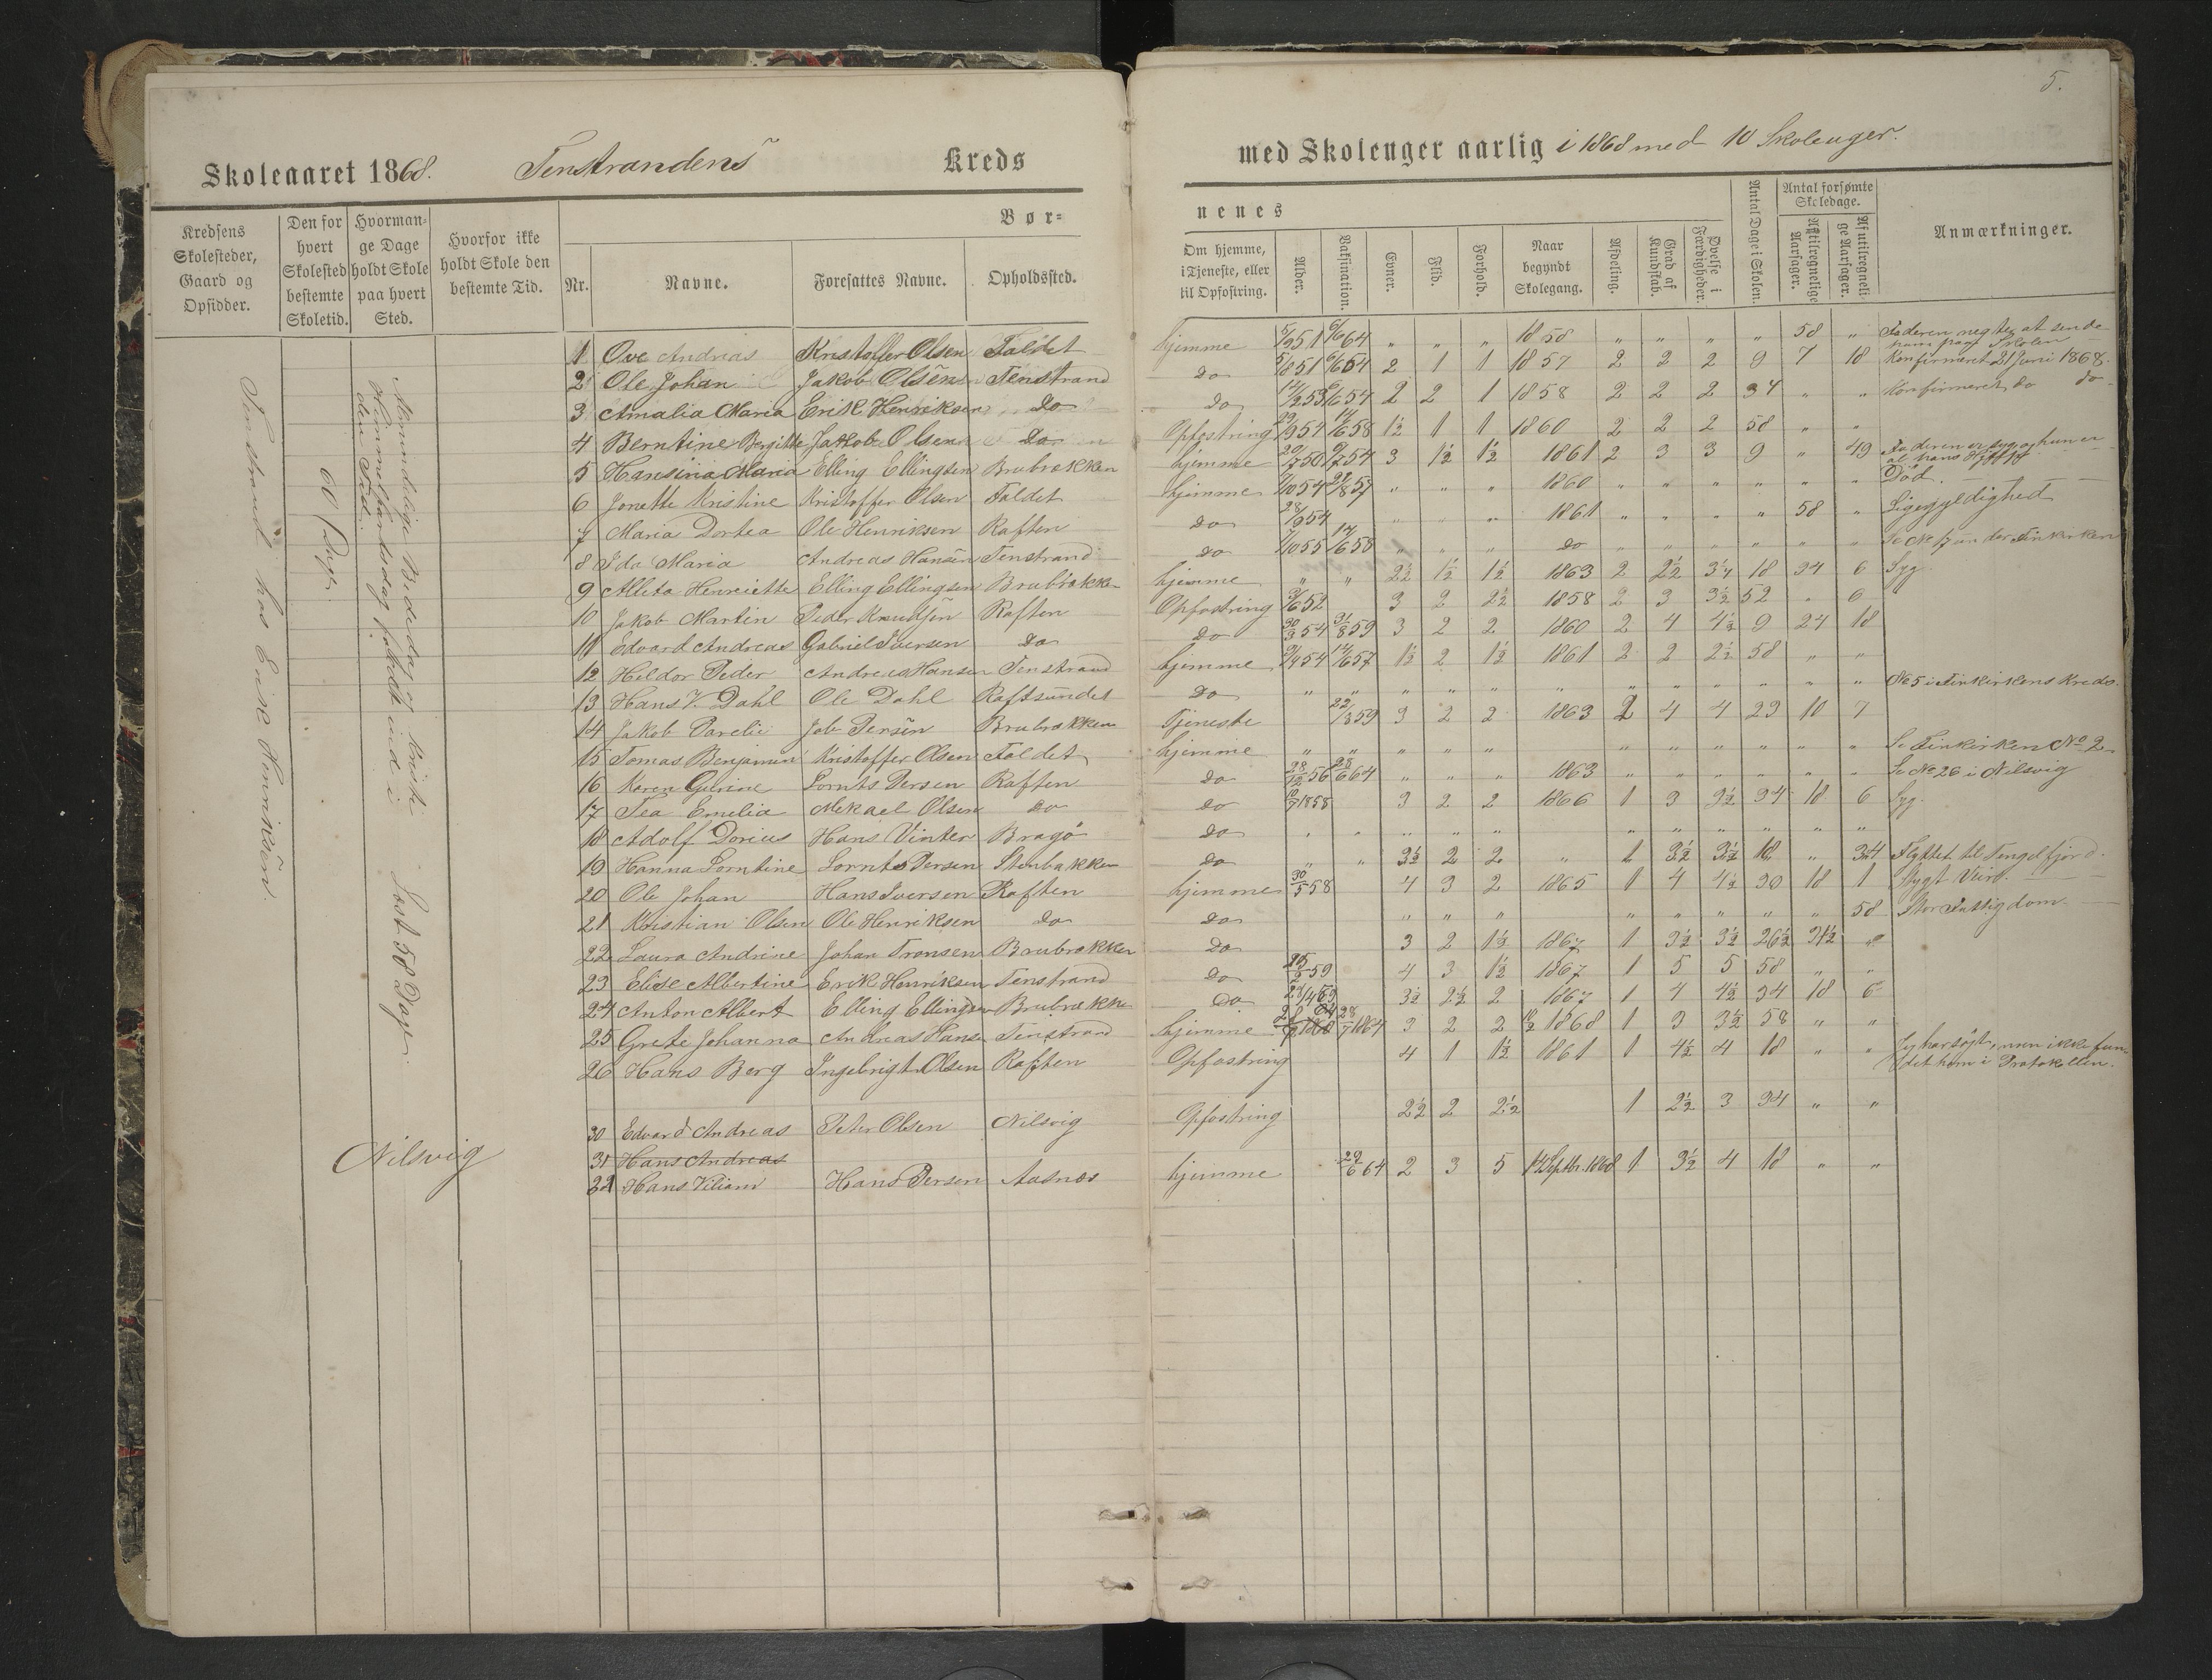 5.
Skoleaaret 1868. Tenstrandens Kreds
med Skoleuger aarlig i 1868 med 10 Skoleuger.
Kredsens Skolesteder, Gaard og Opsidder.
Den for hvert Skolested bestemte Skoletid.
Hvormange Dage holdt Skole paa hvert Sted.
Hvorfor ikke holdt Skole den bestemte Tid.
Bør-
nenes
Nr.
Navne.
Foresattes Navne.
Opholdssted.
Om hjemme, i Tjeneste, eller til Opfostring.
Alder.
Vaksination.
Evner.
Flid.
Forhold.
Naar begyndt Skolegang.
Afdeling.
Grad af Kundskab.
Øvelse i Færdigheder.
Antal Dage i Skolen.
Antal forsømte Skoledage.
Af tilregnelige Aarsager.
Af utilregnelige Aarsager.
Anmærkninger.
Tenstrand hos Erik Henriksen.
60 Dage.
Maanedlige Bededag og Kristi
Himmelfartsdag faldt ind i
den Tid.
Læst 58 Dage.
Nilsvig
1 Ove Andrias Kristoffer Olsen Faldet hjemme 5/9 51 6/6 64 " " " 1858 " " " " 58 " Faderen negter at sende ham paa Skolen
2 Ole Johan Jakob Olsen Tenstrand do 5/8 51 6/6 54 2 1 1 1857 2 2 2 9 7 18 Konfirmeret 21 Juni 1868.
3 Amalia Maria Erik Henriksen do do 14/2 53 6/6 54 2 2 1 1858 2 2 2 34 " " Konfirmeret do do
4 Berntine Bergitte Jakob Olsen do Opfostring 29/9 54 14/6 58 1½ 1 1 1860 2 2 2 58 " "
5 Hansina Maria Elling Ellingsen Brubakken hjemme 20/7 50 9/7 54 3 1½ 1½ 1861 2 3 3 9 " 49 Faderen er syg og hun er al hans Hjælp
6 Jonette Kristine Kristoffer Olsen Faldet hjemme 1/10 54 21/8 57 " " " 1860 " " " " " " Död.
7 Maria Dortea Ole Henriksen Raften do 28/9 54 " " " 1861 " " " " 58 " Ligegyldighed
8 Ida Maria Andreas Hansen Tenstrand do 7/10 55 14/6 58 " " " do " " " " " "
9 Alleta Henriette Elling Ellingsen Brubakken hjemme " " 2½ 1½ 1½ 1863 2 2½ 3¼ 18 34 6 Syg.
10 Jakob Martin Peder Knudsen Raften Opfostring 3/6 52 3 2 2½ 1858 2 3 3½ 52 " 6
11 Edvard Andreas Gabriel Iversen do do 30/3 54 31/8 59 3 2 2 1860 2 4 4½ 9 24 18
12 Heldor Peder Andreas Hansen Tenstrand hjemme 9/4 54 14/6 57 1½ 2 1½ 1861 2 2 2½ 58 " "
13 Hans V. Dahl Ole Dahl Raftsundet do " " " " " " " " " " " " No 5 i Finkirkens Kreds.
14 Jakob Parelie Job Persen Brubakken Tjeneste 22/8 59 3 2 2 1863 2 4 4 23 10 7
15 Tomas Benjamin Kristoffer Olsen Faldet hjemme " " " " " " " " " " " Se Finkirken No 2
16 Karen Gurine Lornts Persen Raften do 28/12 56 28/6 64 " " " 1863 " " " " " " Se No 26 i Nilsvig
17 Tea Emelia Mekael Olsen do do 10/7 1858 3 2 2 1866 1 3 3½ 34 18 6 Syg.
18 Adolf Dorius Hans Vinter Bragö do " " " " " " " " " " "
19 Hanna Lorntine Lornts Persen Stenbakken do " " 3½ 2 2 " 1 3½ 3½ 18 " 34 Flyttet til Tengelfjord
20 Ole Johan Hans Iversen Raften hjemme 30/5 58 4 3 2 1865 1 4 4½ 30 18 1 Stygt Veir.
21 Kristian Olsen Ole Henriksen do do " " " " " " " " 58 Stor Fattigdom.
22 Laura Andrine Johan Transen Brubakken do 3 2 1½ 1867 1 3½ 3½ 26½ 31½ "
23 Elise Albertine Erik Henriksen Tenstrand do 25/2 59 4 3 1½ 1867 1 5 5 58 " "
24 Anton Albert Elling Ellingsen Brubakken do 21/4 59 3½ 2½ 2 1867 1 4 4½ 34 18 6
25 Grete Johanna Andreas Hansen Tenstrand hjemme 28/7 1864 3 2 2 10/2 1868 1 3 3½ 58 " "
26 Hans Berg Ingebrigt Olsen Raften Opfostring 4 1 1½ 1861 1 4½ 4 18 " " Jeg har sögt, men ikke fundet ham i Protokollen.
30 Edvard Andreas Peter Olsen Nilsvig Opfostring 2½ 2 2½ 1 2½ 3 34 " "
31 Hans Andreas
32 Hans Viliam Hans Persen Aasnes hjemme 29/6 64 2 3 5 14 Septbr. 1868 1 3½ 4 18 " "